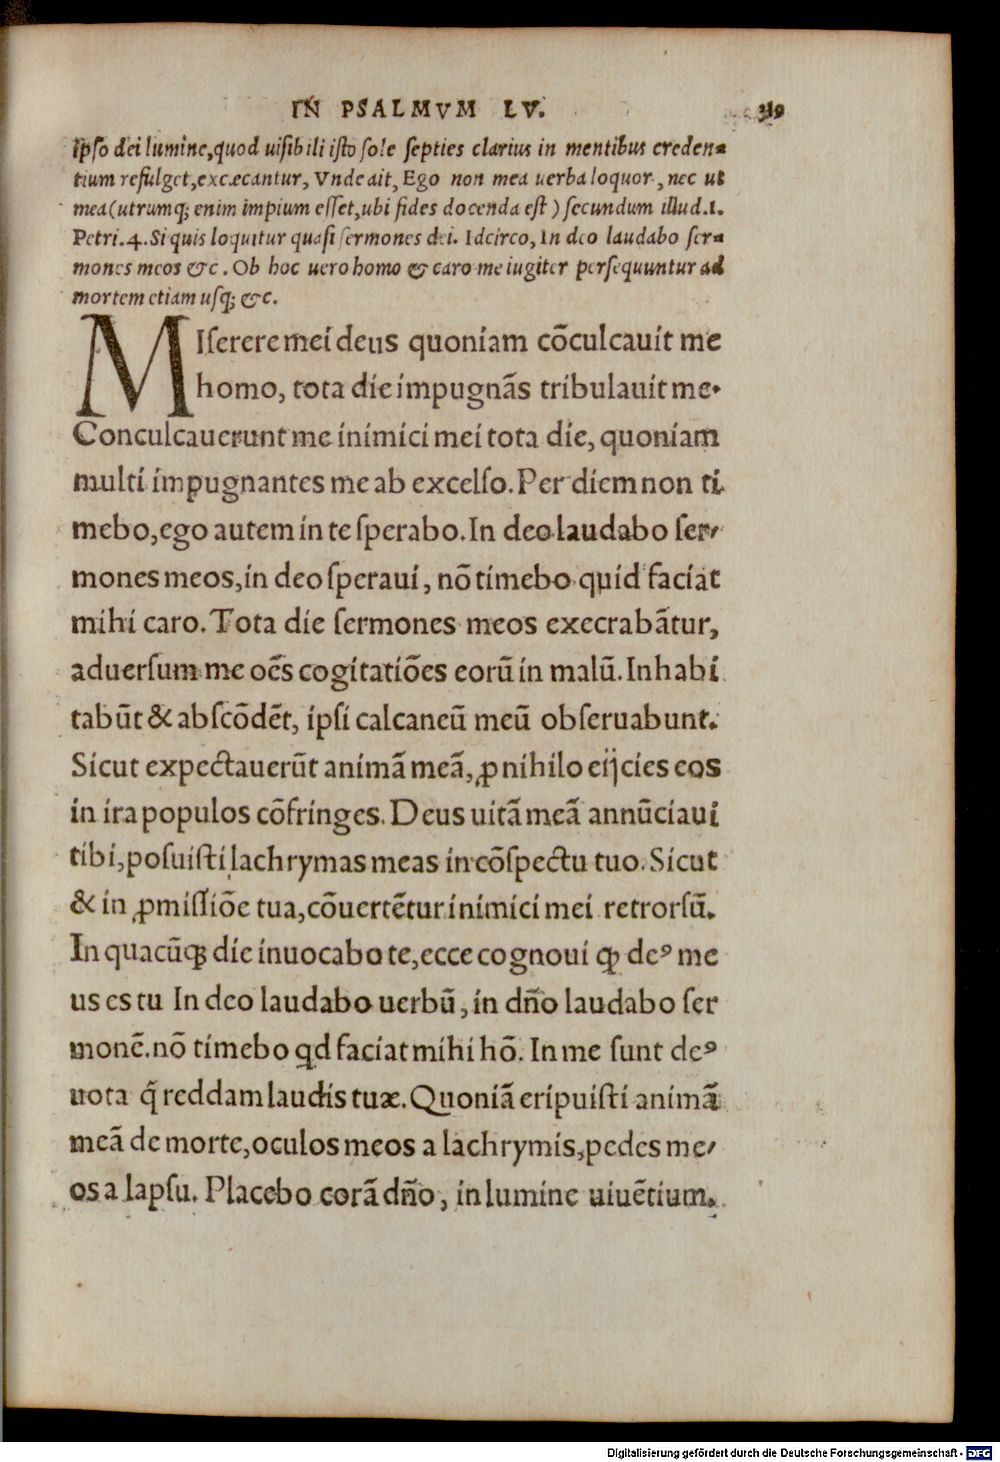 IN PSALMVM LV. 319
ipso dei lumine, quod uisibili isto sole septies clarius in mentibus creden-
tium refulget, excæcantur, Vnde ait, Ego non mea uerba loquor, nec ut
mea (utrumq; enim impium esset, ubi fides docenda est) secundum illud. 1.
Petri. 4. Si quis loquitur quasi sermones dei. Idcirco, In deo laudabo ser-
mones meos &c. Ob hoc uero homo & caro me iugiter persequuntur ad
mortem etiam usq; &c.
MIserere mei deus quoniam cõculcauit me
homo, tota die impugnãs tribulauit me.
Conculcauerunt me inimici mei tota die, quoniam
multi impugnantes me ab excelso. Per diem non ti
mebo, ego autem in te sperabo. In deo laudabo ser-
mones meos, in deo speraui, nõ timebo quid faciat
mihi caro. Tota die sermones meos execrabãtur,
aduersum me oẽs cogitatiões eorũ in malũ. Inhabi
tabũt & abscõdẽt, ipsi calcaneũ meũ obseruabunt.
Sicut expectauerũt animã meã, ꝓ nihilo eijcies eos
in ira populos cõfringes. Deus uitã meã annũciaui
tibi, posuisti lachrymas meas in cõspectu tuo. Sicut
& in ꝓmissiõe tua, cõuertẽtur inimici mei retrorsũ.
In quacũqꝫ die inuocabo te, ecce cognoui ꝙ deꝰ me
us es tu In deo laudabo uerbũ, in dño laudabo ser
monẽ. nõ timebo qd faciat mihi hõ. In me sunt deꝰ
uota q̃ reddam laudis tuæ. Quoniã eripuisti animã
meã de morte, oculos meos a lachrymis, pedes me-
os a lapsu. Placebo corã dño, in lumine uiuẽtium.
Digitalisierung gefördert durch die Deutsche Forschungsgemeinschaft - DFG